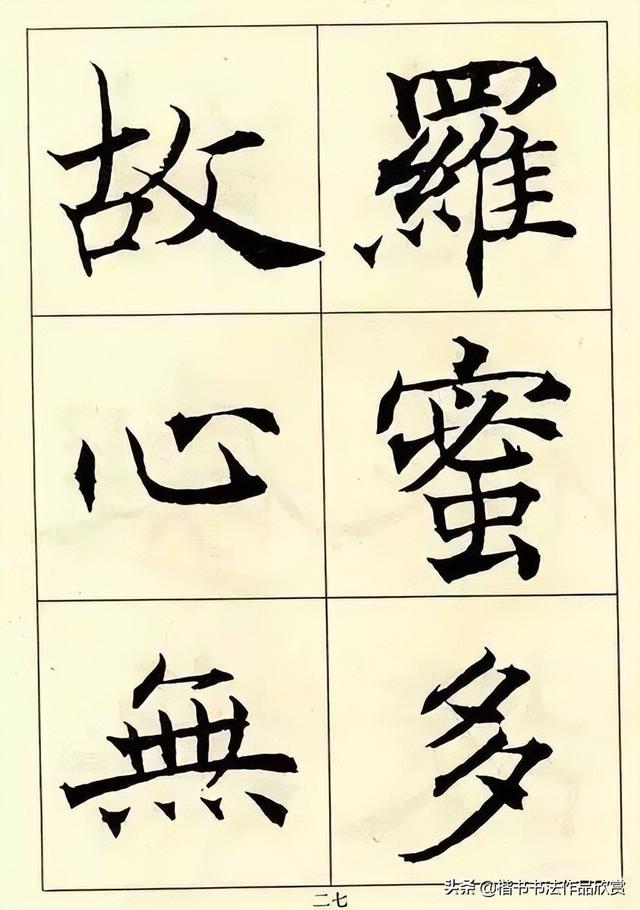 羅蜜多
故心無
二七
头条 @楷书书法作品欣赏